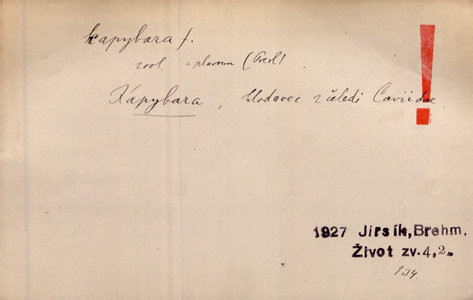 kapybara f.
zool. plavoun (Presl)
Kapybara, hlodavec z čeledi Caviidae
!
1927 Jirsík, Brehm,
Život zv.4,2.
104